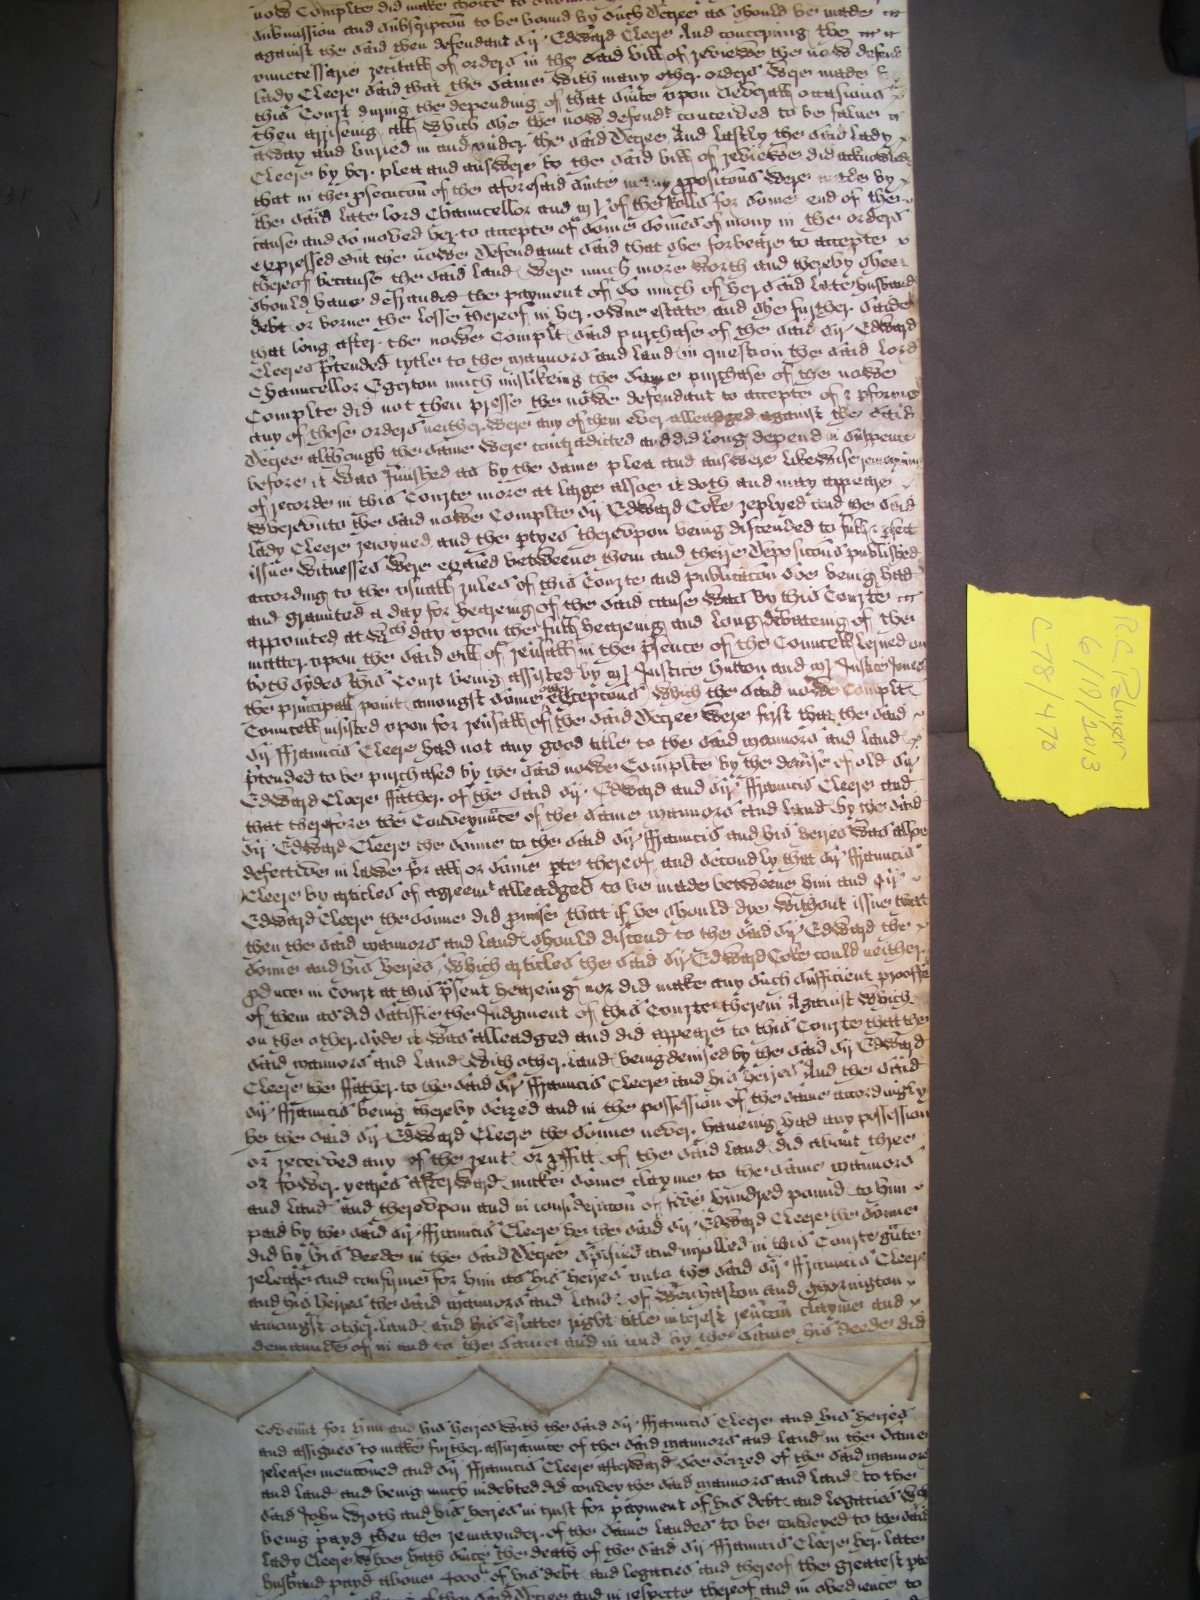 now Complte did make choice to
submission and subscripcon to be bound by such decree as should be made
against the said then defendant Sir Edward Cleere And concerning the
unnecessarie recitall of orders in the said bill of reviewe the now defend
lady Cleere said that the same with many other orders were made
this Court during the depending of that suite upon severall occasions
then ariseing all which she the now defendt conceived to be falne
away and buried in and under the said decree And lastly the said lady
Cleere by her plea and answere to the said bill of reviewe did acknowledge
that in the psecucon of the aforesaid suite many ppositons were made by
the said late lord Chauncellor and mr of the Rolls for some end of the
cause and so moved her to accepte of some somes of mony in the orders
expressed But the nowe defendannt said that she forbeare to accepte
thereof because the said land were much more worth and thereby shee
should have defrauded the payment of so much of her said late husband
debt or borne the losse thereof in her owne estate and she further saide
that long after the nowe Complt said purchase of the said Sir Edward
Cleeres ptended tytle to the mannors and land in question the said lord
Chauncellor Egerton much mislikeing the same purchase of the nowe
Complte did not then presse the nowe defendant to accepte of or pforme
any of those orders neither were any of them ever alleadged against the said
decree although the same were contradicted and did long depend in suspence
before it was finished as by the same plea and answere likewise remayning
of recorde in this Courte more at large alsoe it doth and may appeare
whereunto the said nowe Complte Sir Edward Coke replyed and the said
lady Cleere rejoyned and the ptyes thereupon being discended to full & pfect
issue witnesses were exaied betweene them and theire deposicons published
according to the usuall rules of this Courte and publicacon soe being had
and graunted a day for heareing of the said cause was by this Courte
appointed at wch day upon the full heareing and long debateing of the
matter upon the said bill of reusall in the psence of the Councell lerned on
both sydes this Court being assisted by mr Justice Hutton and mr Justice Jones
the principall point amongst some other excepcons which the said nowe Complt
Councell insisted upon for reusall of the said decree were first that the said
Sir Ffrauncis Cleere had not any good title to the said mannors and land
ptended to be purchased by the said nowe Complte by the devise of old Sir
Edward Cleere ffather of the said Sir Edward and Sir Ffrauncis Cleere and
that therefore the Conveyance of the same mannors and land by the said
Sir Edward Cleere the sonne to the said Sir Ffrauncis and his heires was alsoe
defective in lawe for all or some pte thereof and secondly that Sir Ffrauncis
Cleere by articles of agreemt alleadged to be made betweene him and Sir
Edward Cleere the sonne did pmise that if he should dye without issue that
then the said mannors and land should discend to the said Sir Edward the
sonne and his heires which articles the said Sir Edward Coke could neither
pduce in Court at this psent heareing nor did make any such sufficient prooffe
of them as did satisfie the Judgment of this Courte therein Against which
on the other syde it was alleadged and did appeare to this Courte that the
said mannors and land with other land being devised by the said Sir Edward
Cleere the ffather to the said Sir Ffrauncis Cleere and his heires And the said
Sir Ffrauncis being thereby seized and in the possession of the same accordingly
he the said Sir Edward Cleere the sonne never haveing had any possession
or received any of the rent or pffitt of the said land did about three
or fower yeares afterward make some clayme to the same mannors
and land and thereupon and in consideracon of five hundred pound to him
paid by the said Sir Ffrauncis Cleere he the said Sir Edward Cleere the sonne
did by his deede in the said decree specified and inrolled in this Courte
release and confirme for him and his heires unto the said Sir Ffrauncis Cleere
and his heires the said mannors and land of and Thornington
amongst other land and his estate right title interest clayme and
demaunde of in and to the same and in and by the same his deede did
covennt for him and his heires with the said Sir Ffrauncis Cleere and his heires
and assignes to make further assurannce of the said mannors and land in the same
release mencioned and Sir Ffrauncis Cleere afterward soe seized of the said mannors
and land and being much indebted did convey the said mannors and land to the
said John Wroth and his heires in trust for payment of his debt and legacies wch
being payd then the remaynder of the same landes to be conveyed to the said
lady Cleere whoe hath since the death of the said Sir Ffrauncis Cleere her late
husband payd above 4000l of his debt and legacies and thereof the greatest pte
of the said decree and in respecte thereof and in obedience to
R.C. Palmer
6/10/2013
C78/470